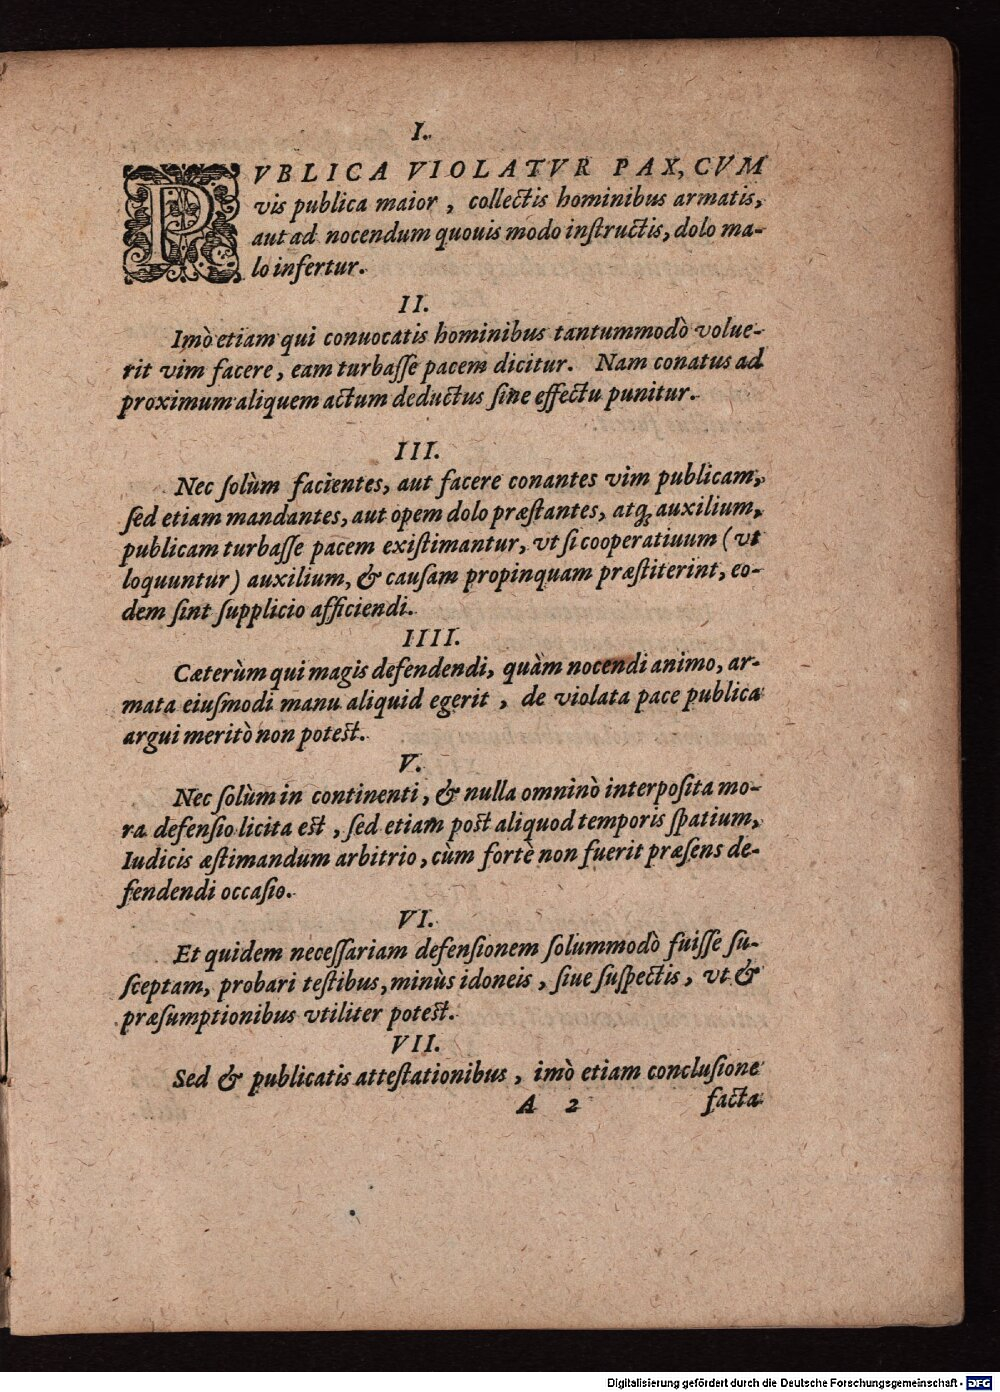 I.
PVBLICA VIOLATVR PAX, CVM
vis publica maior, collectis hominibus armatis,
aut ad nocendum quouis modo inſtructis, dolo ma-
lo infertur.
II.
Imò etiam qui conuocatis hominibus tantummodò volue-
rit vim facere, eam turbaſſe pacem dicitur. Nam conatus ad
proximum aliquem actum deductus ſine effectu punitur.
III.
Nec ſolùm facientes, aut facere conantes vim publicam,
ſed etiam mandantes, aut opem dolo præſtantes, atq; auxilium,
publicam turbaſſe pacem exiſtimantur, vt ſi cooperatiuum (vt
loquuntur) auxilium, & cauſam propinquam præſtiterint, eo-
dem ſint ſupplicio afficiendi.
IIII.
Cæterùm qui magis defendendi, quàm nocendi animo, ar-
mata eiuſmodi manu aliquid egerit, de violata pace publica
argui meritò non poteſt.
V.
Nec ſolùm in continenti, & nulla omninò interpoſita mo-
ra defenſio licita eſt, ſed etiam poſt aliquod temporis ſpatium,
Iudicis æſtimandum arbitrio, cùm fortè non fuerit præſens de-
fendendi occaſio.
VI.
Et quidem neceſſariam defenſionem ſolummodò fuiſſe ſu-
ſceptam, probari teſtibus, minùs idoneis, ſiue ſuſpectis, vt &
præſumptionibus vtiliter poteſt.
VII.
Sed & publicatis atteſtationibus, imò etiam concluſione
A 2 facta
Digitalisierung gefördert durch die Deutsche Forschungsgemeinschaft - DFG